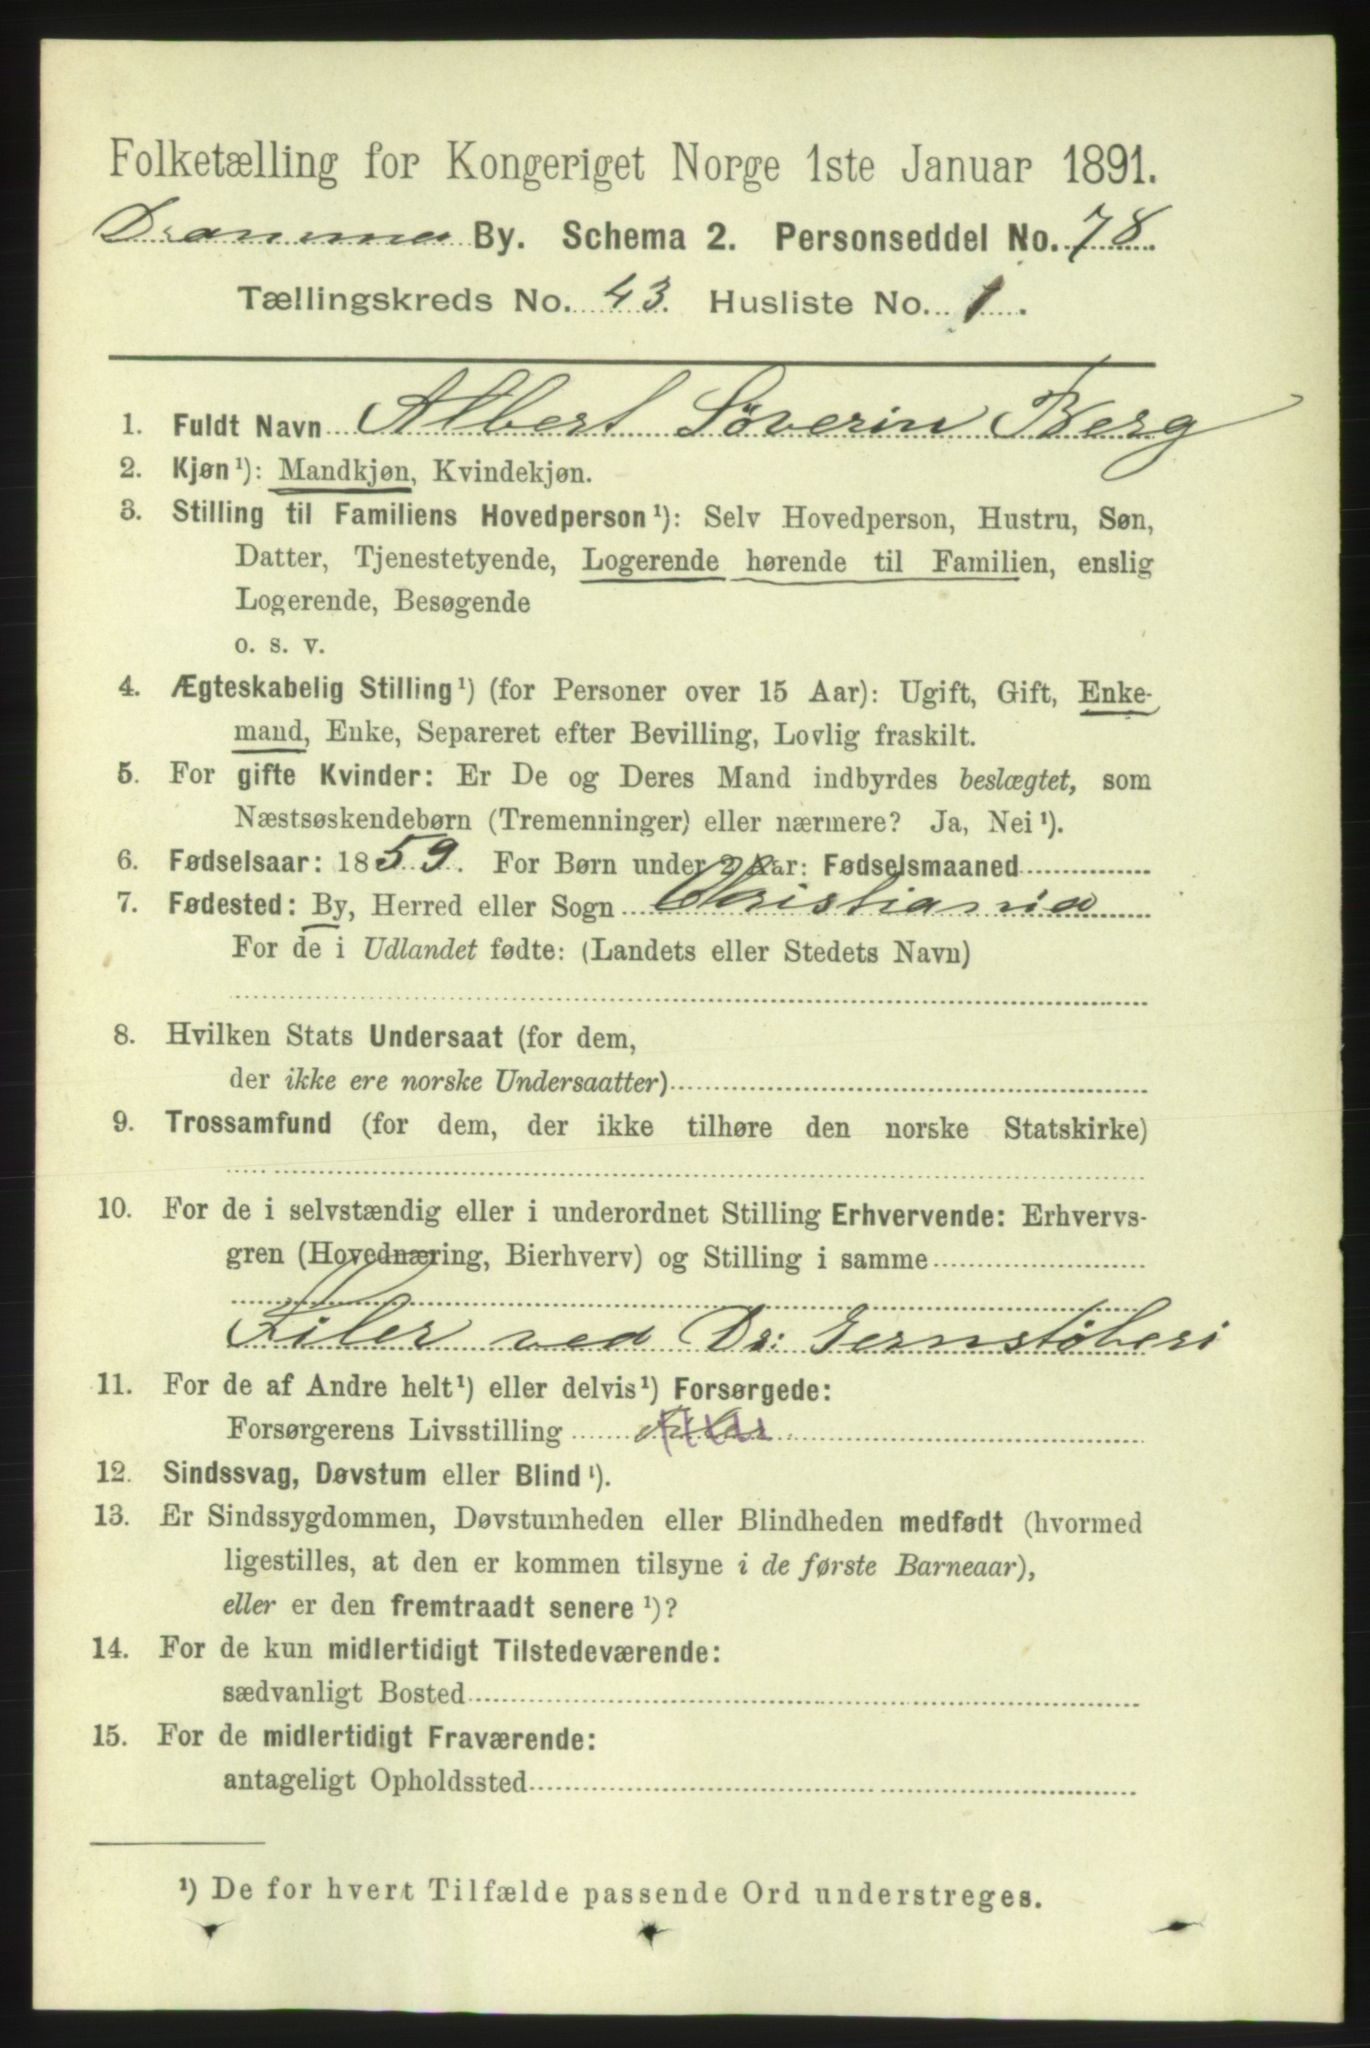 Folketælling for Kongeriget Norge 1ste Januar 1891.
Drammen By. Schema 2. Personseddel No. 78.
Tællingskreds No. 43. Husliste No. 1.
1. Fuldt Navn Albert Søverin Berg
2. Kjøn¹): Mandkjøn, Kvindekjøn.
3. Stilling til Familiens Hovedperson¹): Selv Hovedperson, Hustru, Søn,
Datter, Tjenestetyende, Logerende hørende til Familien, enslig
Logerende, Besøgende
o. s. v.
4. Ægteskabelig Stilling¹) (for Personer over 15 Aar): Ugift, Gift, Enke-
mand, Enke, Separeret efter Bevilling, Lovlig fraskilt.
5. For gifte Kvinder: Er De og Deres Mand indbyrdes beslægtet, som
Næstsøskendebørn (Tremenninger) eller nærmere? Ja, Nei¹).
6. Fødselsaar: 1859. For Børn under 2 Aar: Fødselsmaaned
7. Fødested: By, Herred eller Sogn Christiania
For de i Udlandet fødte: (Landets eller Stedets Navn)
8. Hvilken Stats Undersaat (for dem,
der ikke ere norske Undersaatter)
9. Trossamfund (for dem, der ikke tilhøre den norske Statskirke)
10. For de i selvstændig eller i underordnet Stilling Erhvervende: Erhvervs-
gren (Hovednæring, Bierhverv) og Stilling i samme
Filer ved Dr: Jernstøberi
11. For de af Andre helt¹) eller delvis¹) Forsørgede:
Forsørgerens Livsstilling
12. Sindssvag, Døvstum eller Blind¹).
13. Er Sindssygdommen, Døvstumheden eller Blindheden medfødt (hvormed
ligestilles, at den er kommen tilsyne i de første Barneaar),
eller er den fremtraadt senere¹)?
14. For de kun midlertidigt Tilstedeværende:
sædvanligt Bosted
15. For de midlertidigt Fraværende:
antageligt Opholdssted
¹) De for hvert Tilfælde passende Ord understreges.